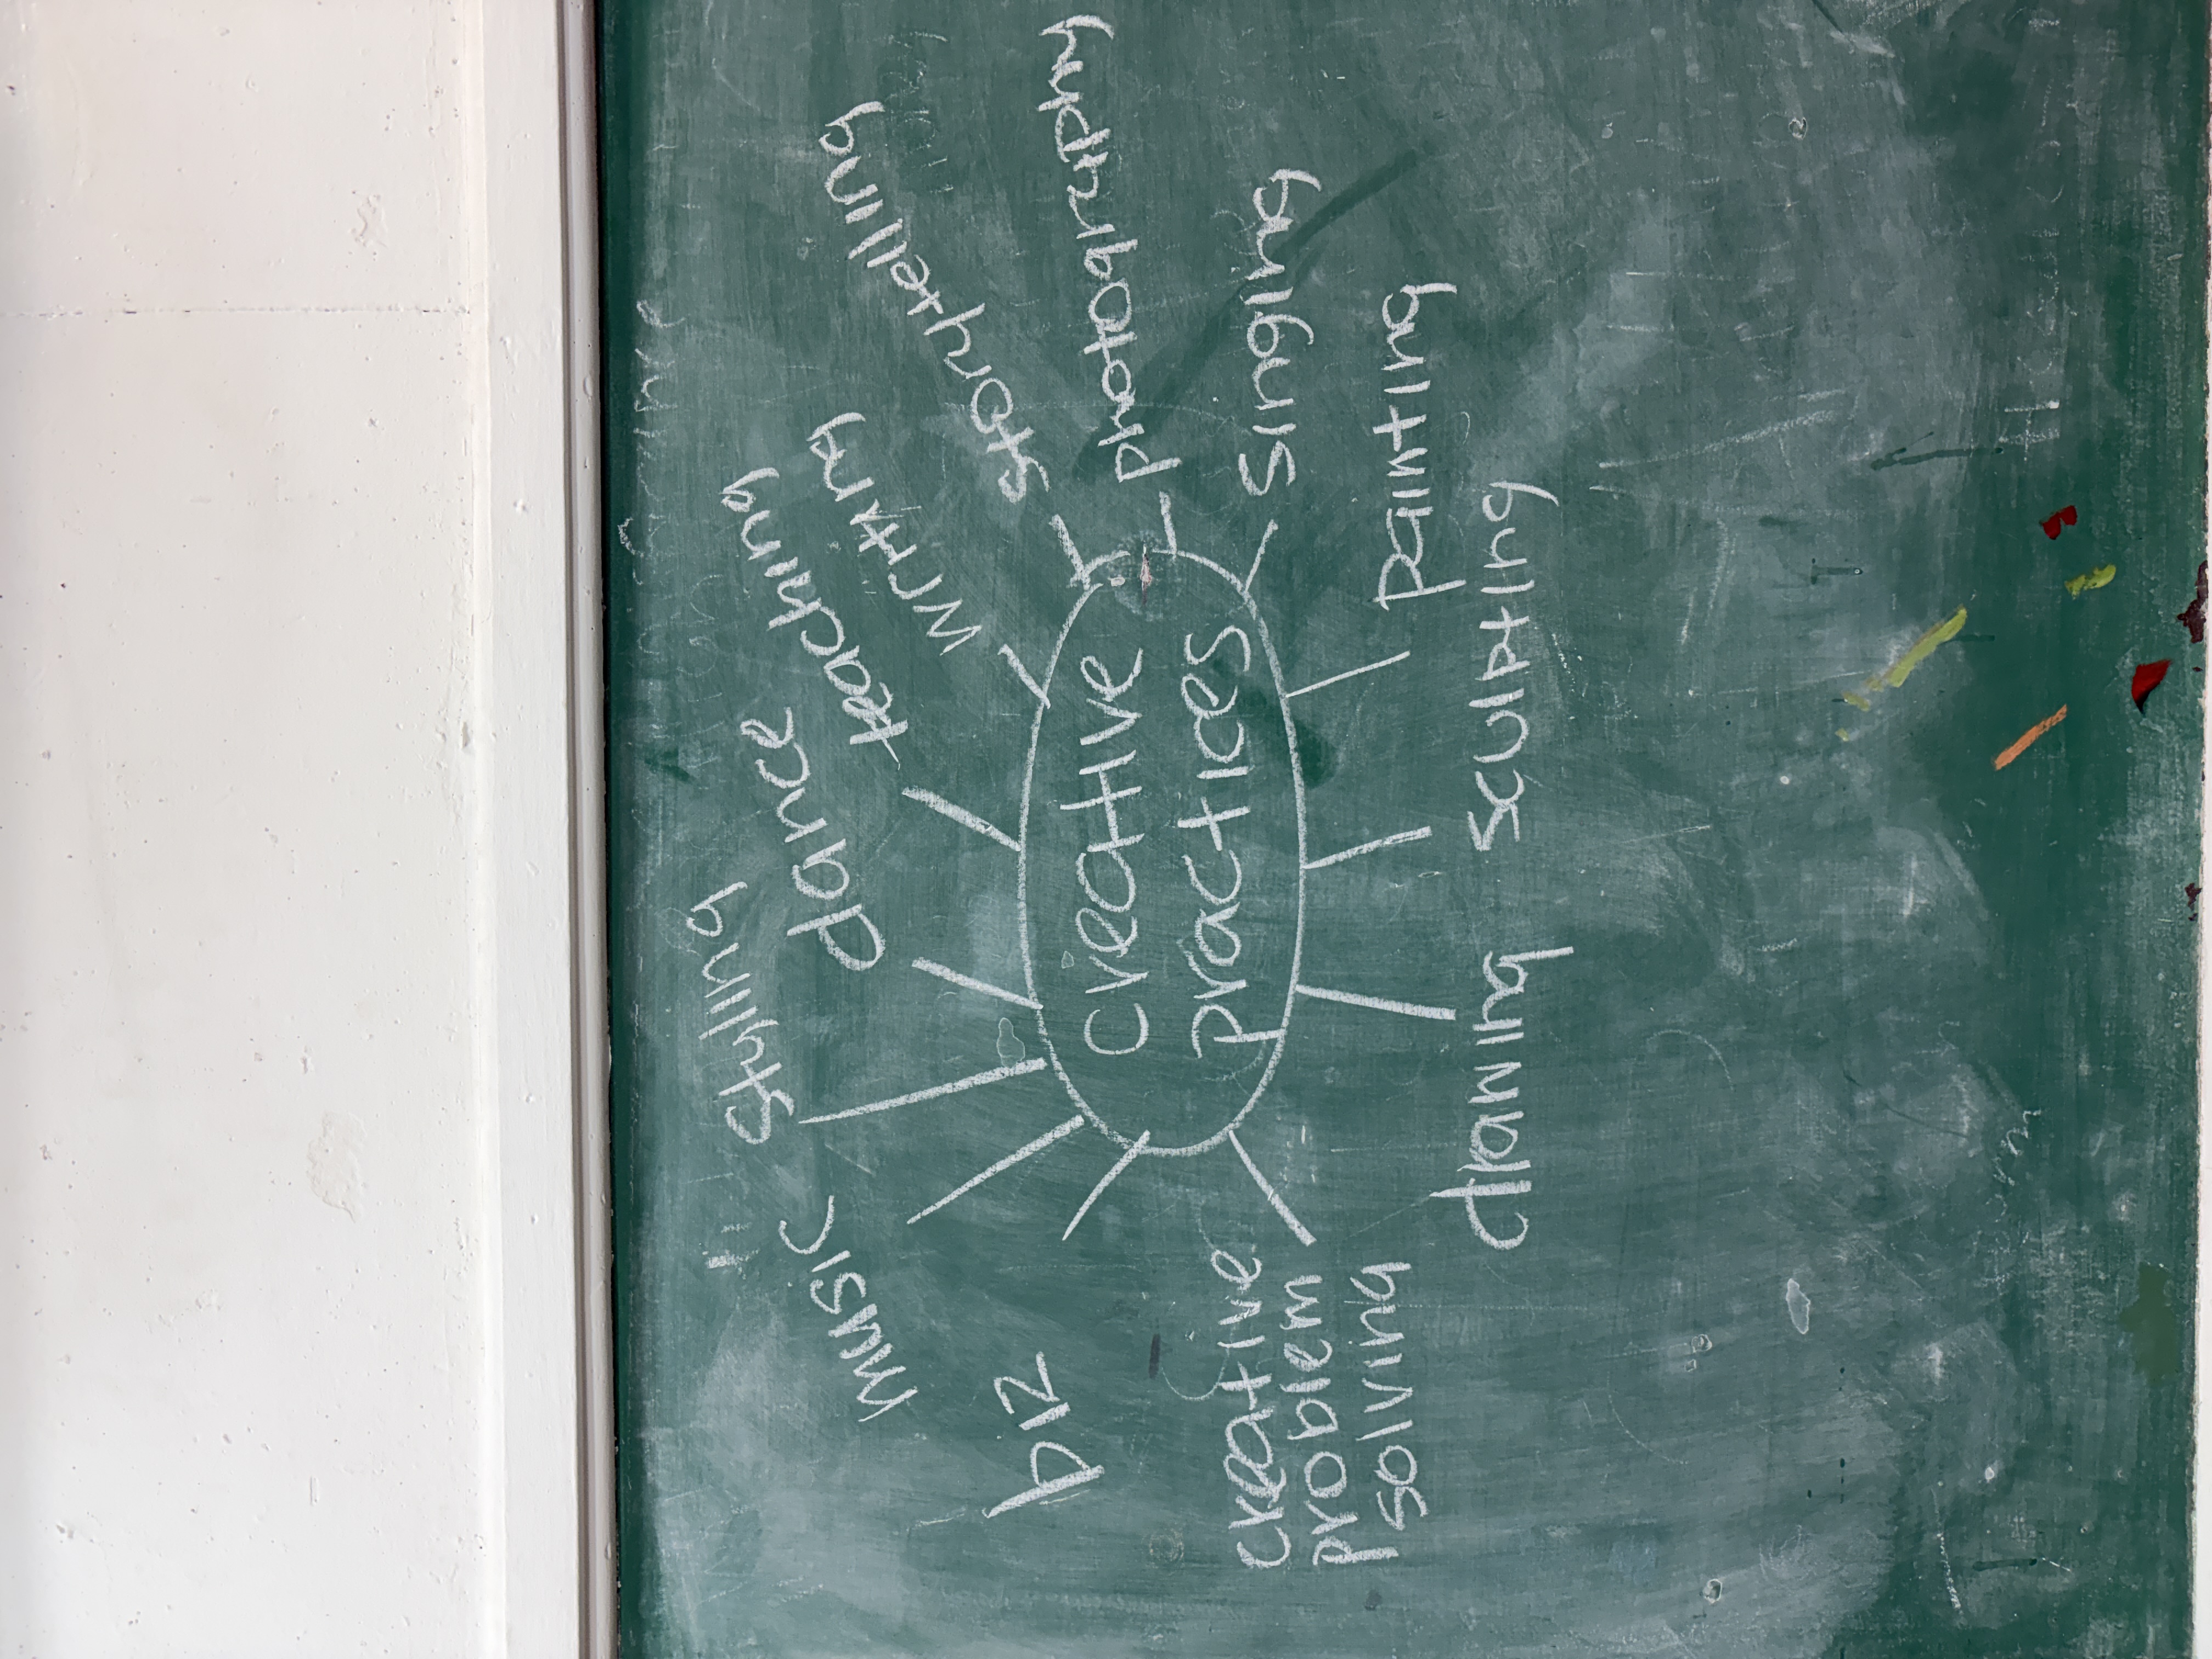 creative
practices
styling
dance
teaching
writing
storytelling
photography
singing
painting
sculpting
drawing
creative
problem
solving
biz
music